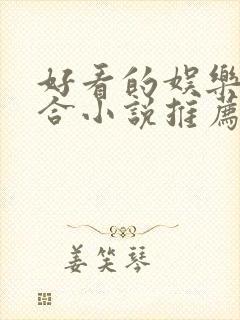 好看的娱樂
合小说推薦
姜笑琴